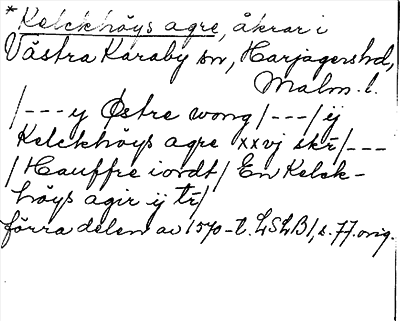 *Kelckhöys agre, åkrar i
Västra Karaby sn, Harjagershd,
Malm. l.
/---y Østre wong/---/ij
Kelckhöys agre xxvj skr̄/---
/Hauffre iordt/ En Kelck-
höys agir ij tr̄/
förra delen av 1570-t. LSLB 1, s. 77. orig.